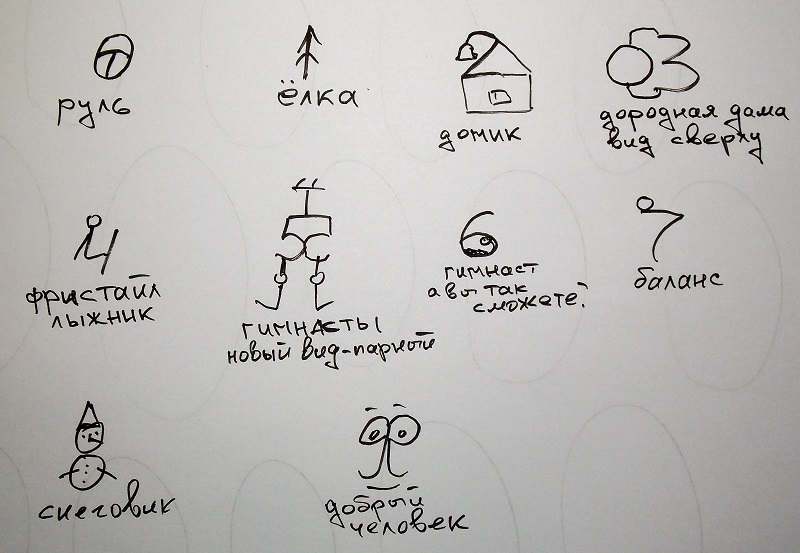 руль
ёлка
домик
дородная дама
вид сверху
фристайл
лыжник
гимнасты
новый вид-парный
гимнаст
а вы так
сможете?
баланс
снеговик
добрый
человек